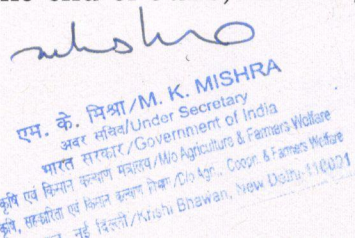 एम. के. मिश्रा/M. K. MISHRA
अवर सचिव/Under Secretary
भारत सरकार/Government of India
कृषि एवं किसान कल्याण मंत्रालय/M/o Agriculture & Farmers Welfare
कृषि, सहकारिता एवं किसान कल्याण विभाग/D/o Agr., Coopr. & Farmers Welfare
नई दिल्ली/Krishi Bhawan, New Delhi-110001